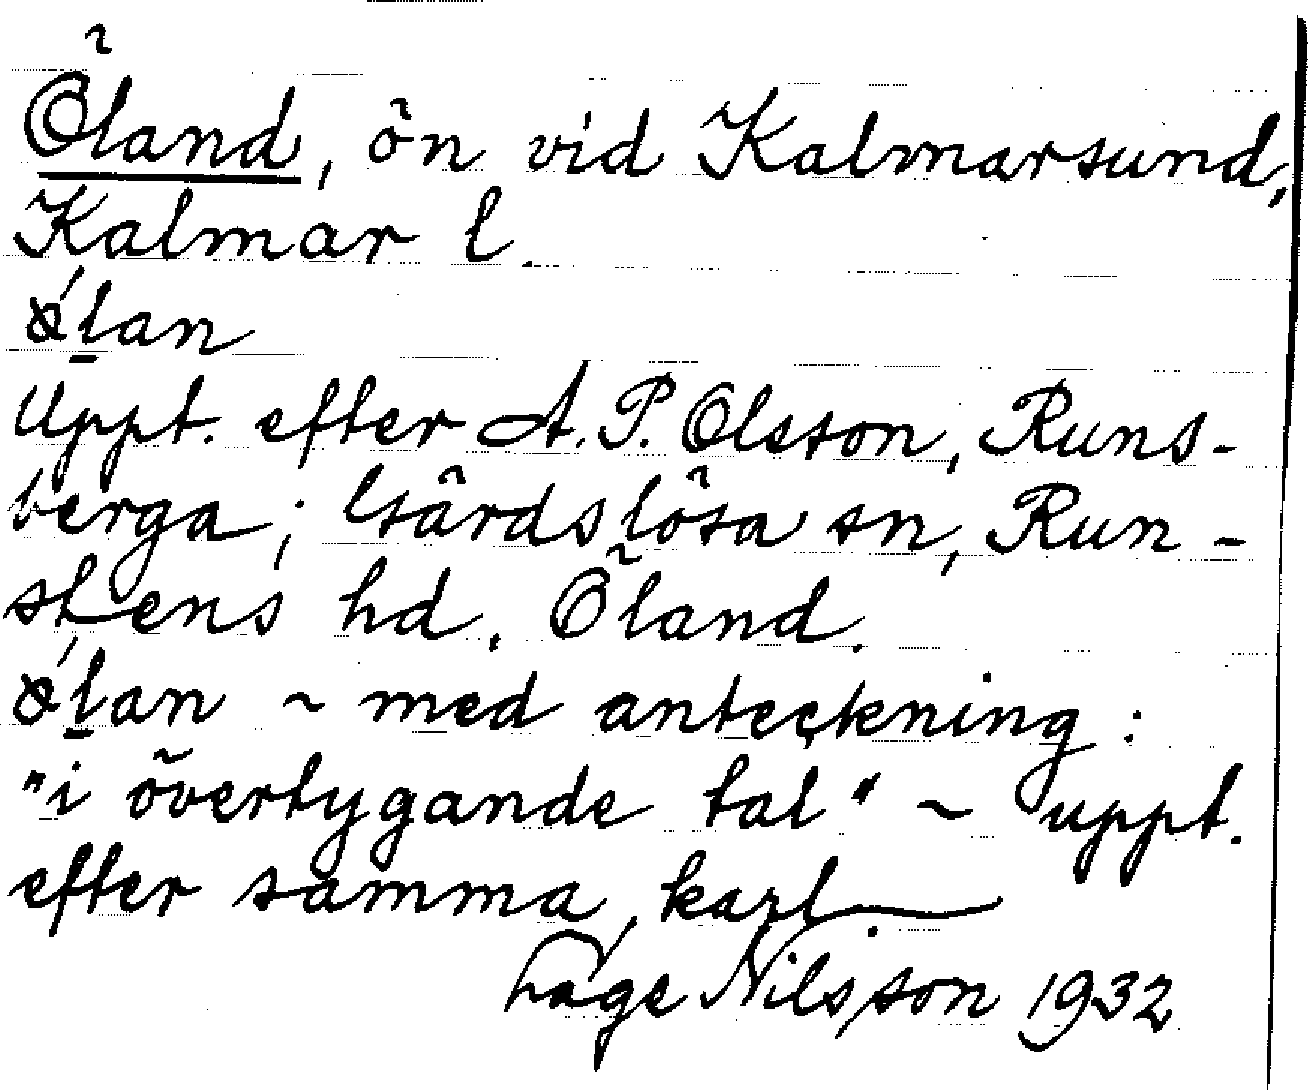 Öland, ön vid Kalmarsund,
Kalmar l.
Uppt. efter A. P. Olsson, Runs-
berga; Gärdslösa sn, Run-
stens hd, Öland.
lan ~ med anteckning:
"i övertygande tal" ~ uppt.
efter samma karl.
Hage Nilsson 1932